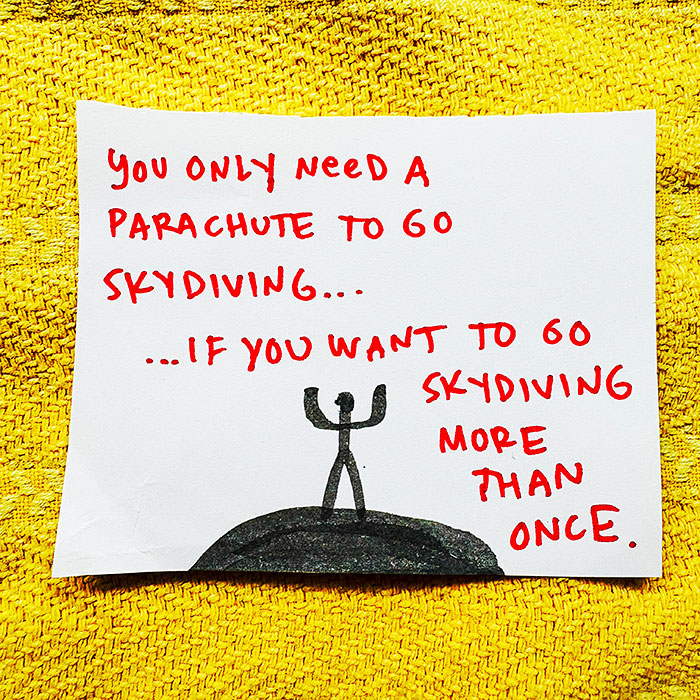 YOU ONLY NeeD A
PARACHUTE TO GO
SKYDIVING...
...IF YOU WANT TO GO
SKYDIVING
MORE
THAN
ONCE.